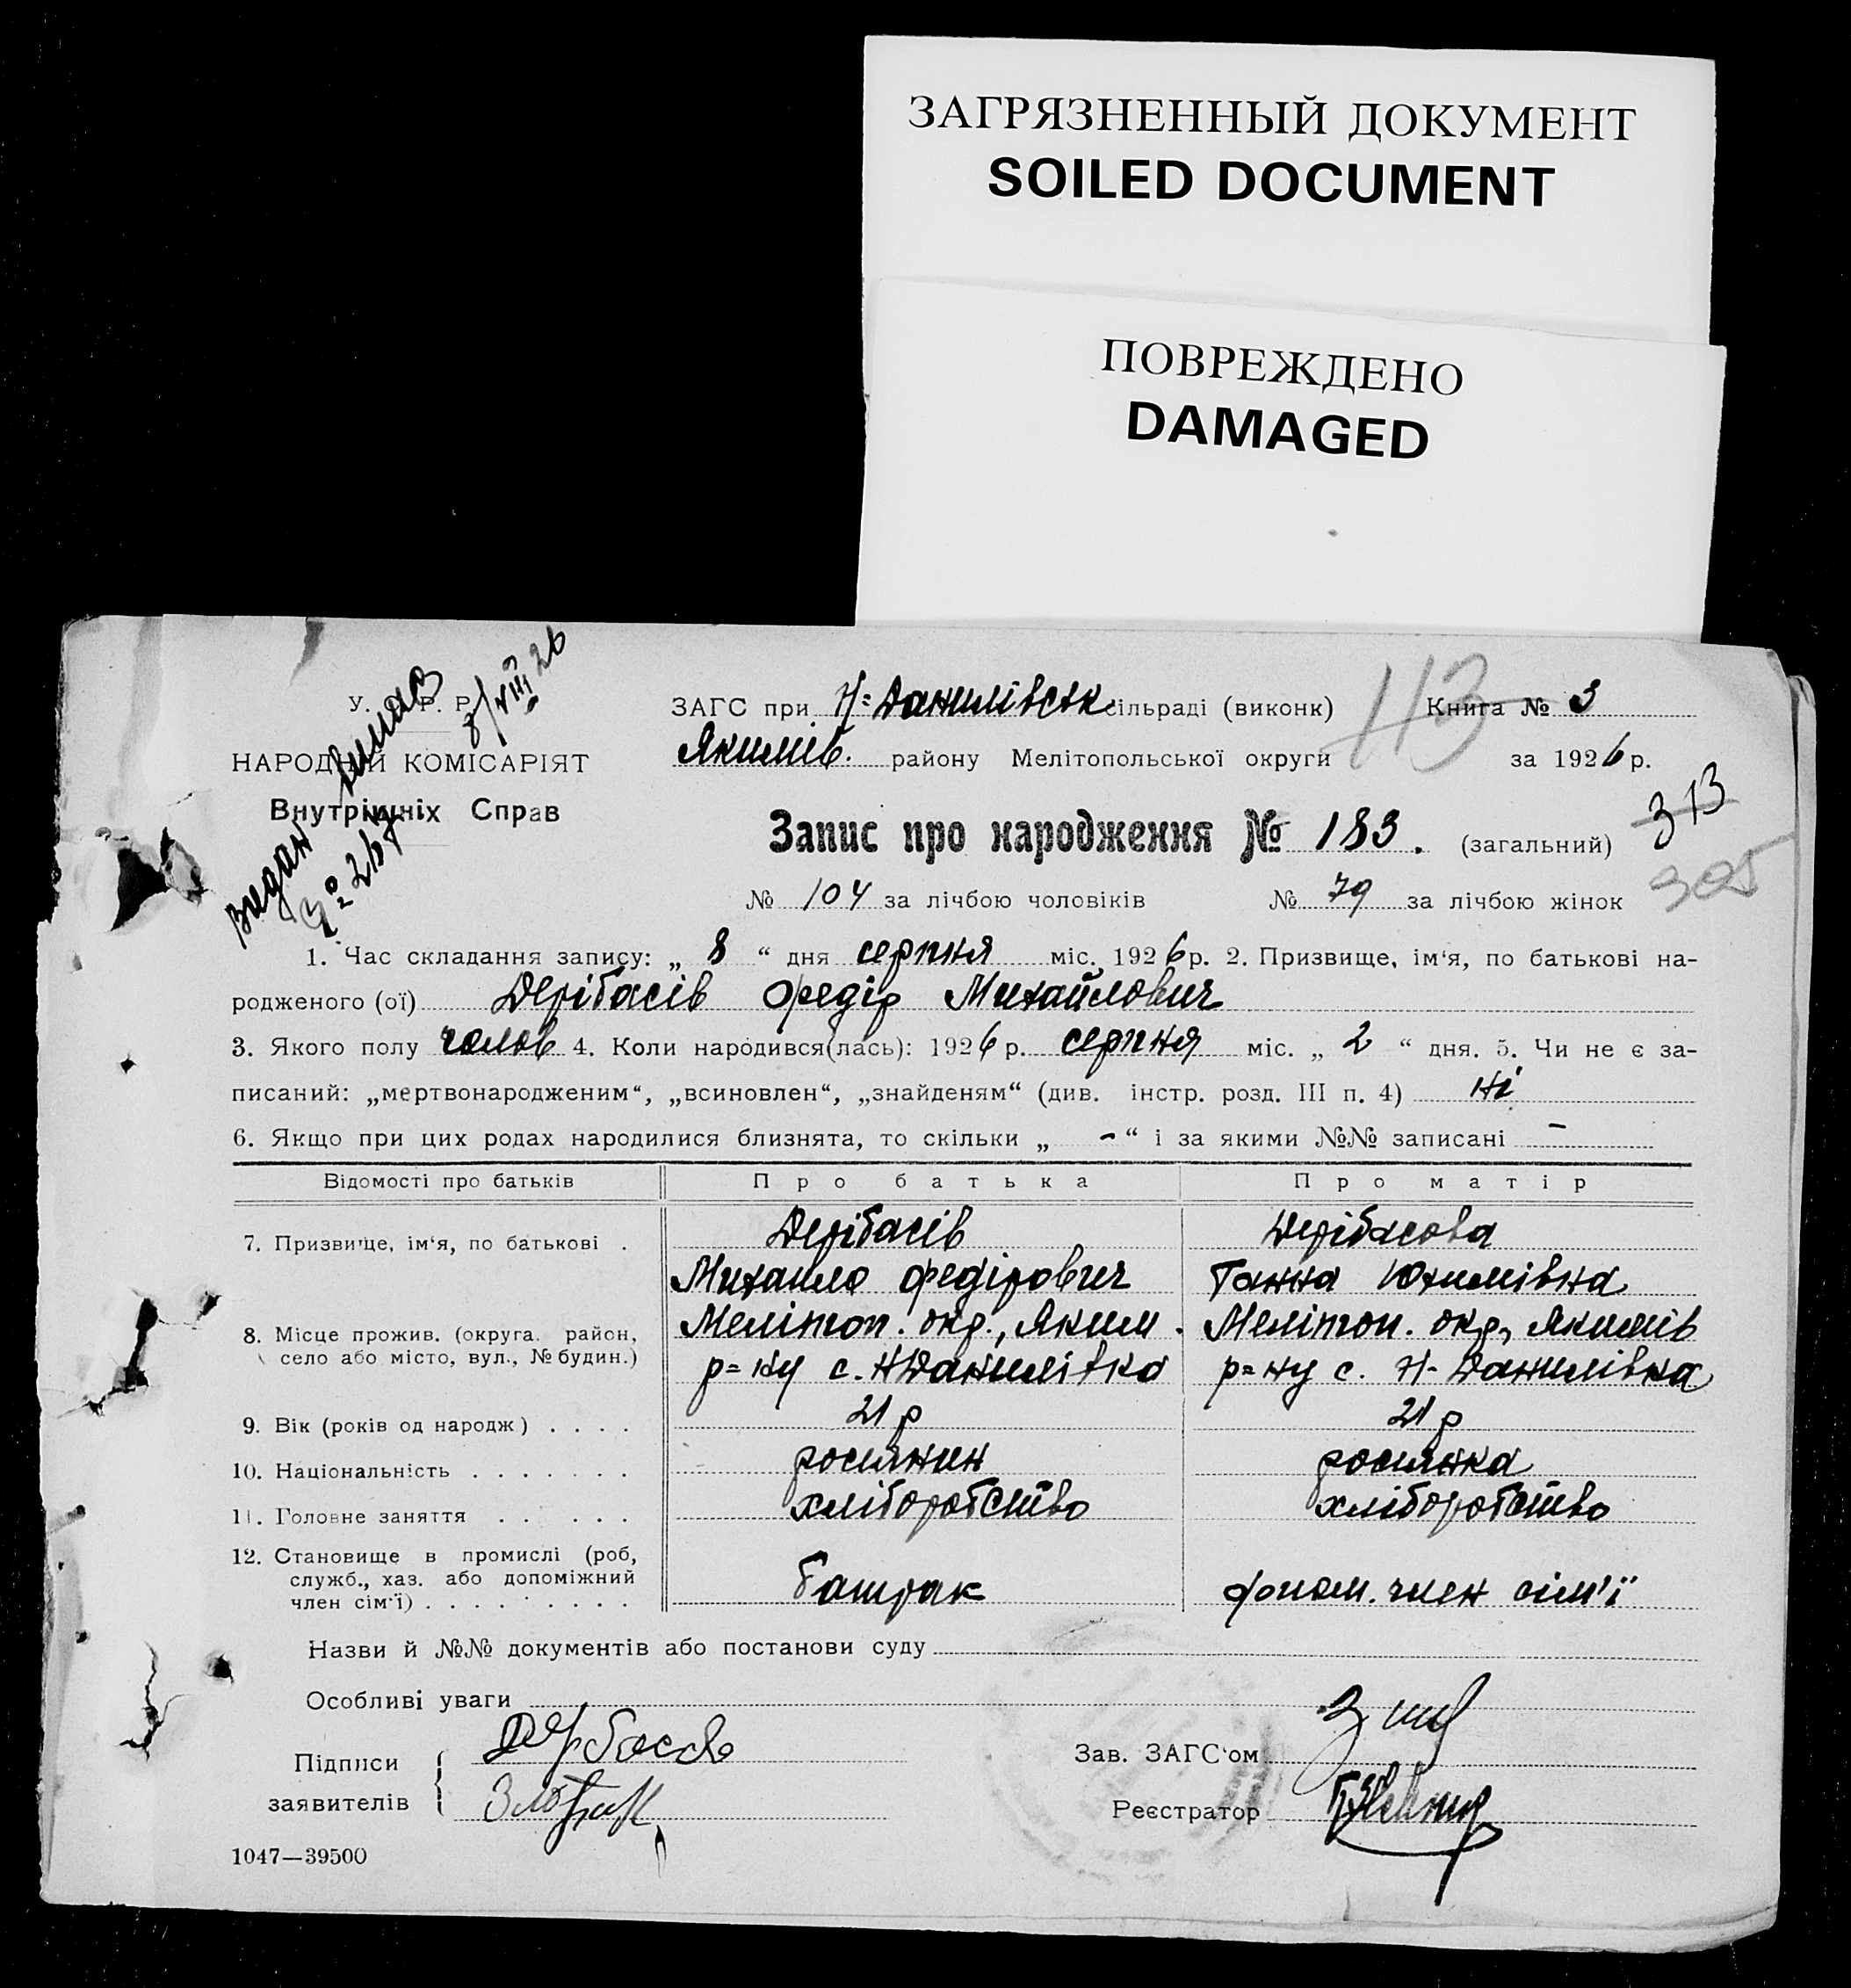 ЗАГРЯЗНЕННЫЙ ДОКУМЕНТ
SOILED DOCUMENT
ПОВРЕЖДЕНО
DAMAGED
У. С. Р. Р.
НАРОДНІЙ КОМІСАРІЯТ
Внутрішніх Справ
Видан виписа
8/VIII 26
№ 267
ЗАГС при Н=Данилівськ сільраді (виконк) Книга № 3
113
Якимів. району Мелітопольської округи за 1926 р.
313
Запис про народження № 183. (загальний)
305
№ 104 за лічбою чоловіків № 79 за лічбою жінок
1. Час складання запису: „ 8 “ дня серпня міс. 1926 р. 2. Призвище, ім‘я, по батькові на-
родженого (ої) Дерібасів Федір Михайлович
3. Якого полу чолов 4. Коли народився(лась): 1926 р. серпня міс. „ 2 “ дня. 5. Чи не є за-
писаний: „мертвонародженим“, „всиновлен“, „знайденям“ (див. інстр. розд. III п. 4) ні
6. Якщо при цих родах народилися близнята, то скільки „ - “ і за якими №№ записані -
Відомості про батьків Про батька Про матір
7. Призвище, ім‘я, по батькові . Дерібасів Дерібасова
Михайло Федірович Ганна Юхимівна
8. Місце прожив. (округа. район, село або місто, вул., № будин.) Мелітоп. окр., Яким. Мелітоп. окр., Якимів
р=ну с. НДанилівка р=ну с. Н-Данилівка
9. Вік (років од народж) . . . . 21 р 21 р
10. Національність . . . . . . . росиянин росиянка
11. Головне заняття . . . . . хліборобство хліборобство
12. Становище в промислі (роб, служб., хаз. або допоміжний член сім‘ї) . . . . . . . . . батрак допом. член сім'ї
Назви й №№ документів або постанови суду
Особливі уваги
Підписи
заявителів
Зав. ЗАГС‘ом
Реєстратор
1047—39500